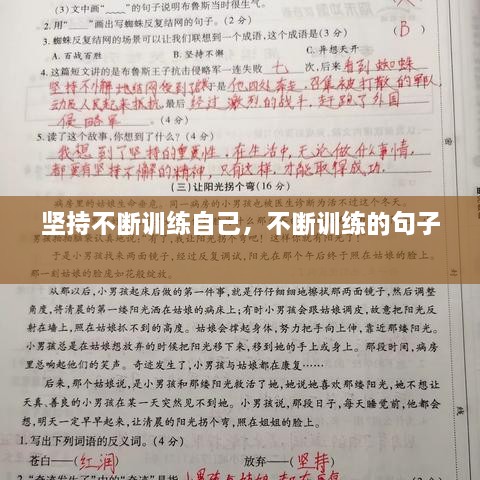 (3)文中画“﹏﹏”的句子说明布鲁斯当时很生气。
2.用“——”画出写蜘蛛反复结网的句子。(2分)
3.蜘蛛反复结网可以让我们联想到一个成语,这个成语是(3分)
(B)
A.百战百胜 B.坚持不懈 C.异想天开
4.这篇短文讲的是布鲁斯王子抗击侵略军一连失败 七 次,后来 看到蜘蛛
坚持不懈地结网 于是 他四处奔走,召集被打散的军队,
动员人民起来抵抗 最后 经过激烈的战斗,赶跑了外国
侵略军 。(4分)
5.读了这个故事,你想到了什么?(4分)
我想到了坚持的重要性,在生活中,无论做什么事情,
都要有坚持不懈的精神,只有这样,才能取得成功。
(三)让阳光拐个弯(16分)
坚持不断训练自己,不断训练的句子
于是小男孩找来两面镜子,经过反复调试,阳光在那个午后终于照在姑娘的
病床上,姑娘的脸庞如花般绽放。
从那以后,小男孩起床后做的第一件事,就是仔仔细细地擦拭那两面镜子,然后调整
角度,将清晨的第一缕阳光洒在姑娘的病床上;有时小男孩会跟姑娘调皮,故意把阳光反
射在墙上,照在姑娘抓不到的高度。姑娘会撑起身体,努力把手向上伸,靠近那缕阳光。
小男孩总是在姑娘想放弃的时候把阳光移下来,移到她的手上或身上。那段时间,病房
里总会响起他们的笑声。奇迹发生了,小男孩与姑娘都在康复……
后来,那个姑娘说,是小男孩和那缕阳光救活了她,她说她喜欢那缕阳光,她不想让
天真、善良的小男孩在某一天突然见不到她。小男孩说,那段日子,每天睡觉前,他都会
想,明天一定早早起来,让清晨的阳光拐个弯,照在姐姐的脸上。
1.写出下列词语的反义词。(4分)
苍白——(红润) 放弃——(坚持)
2.“奇迹发生了”中的“奇迹”是指